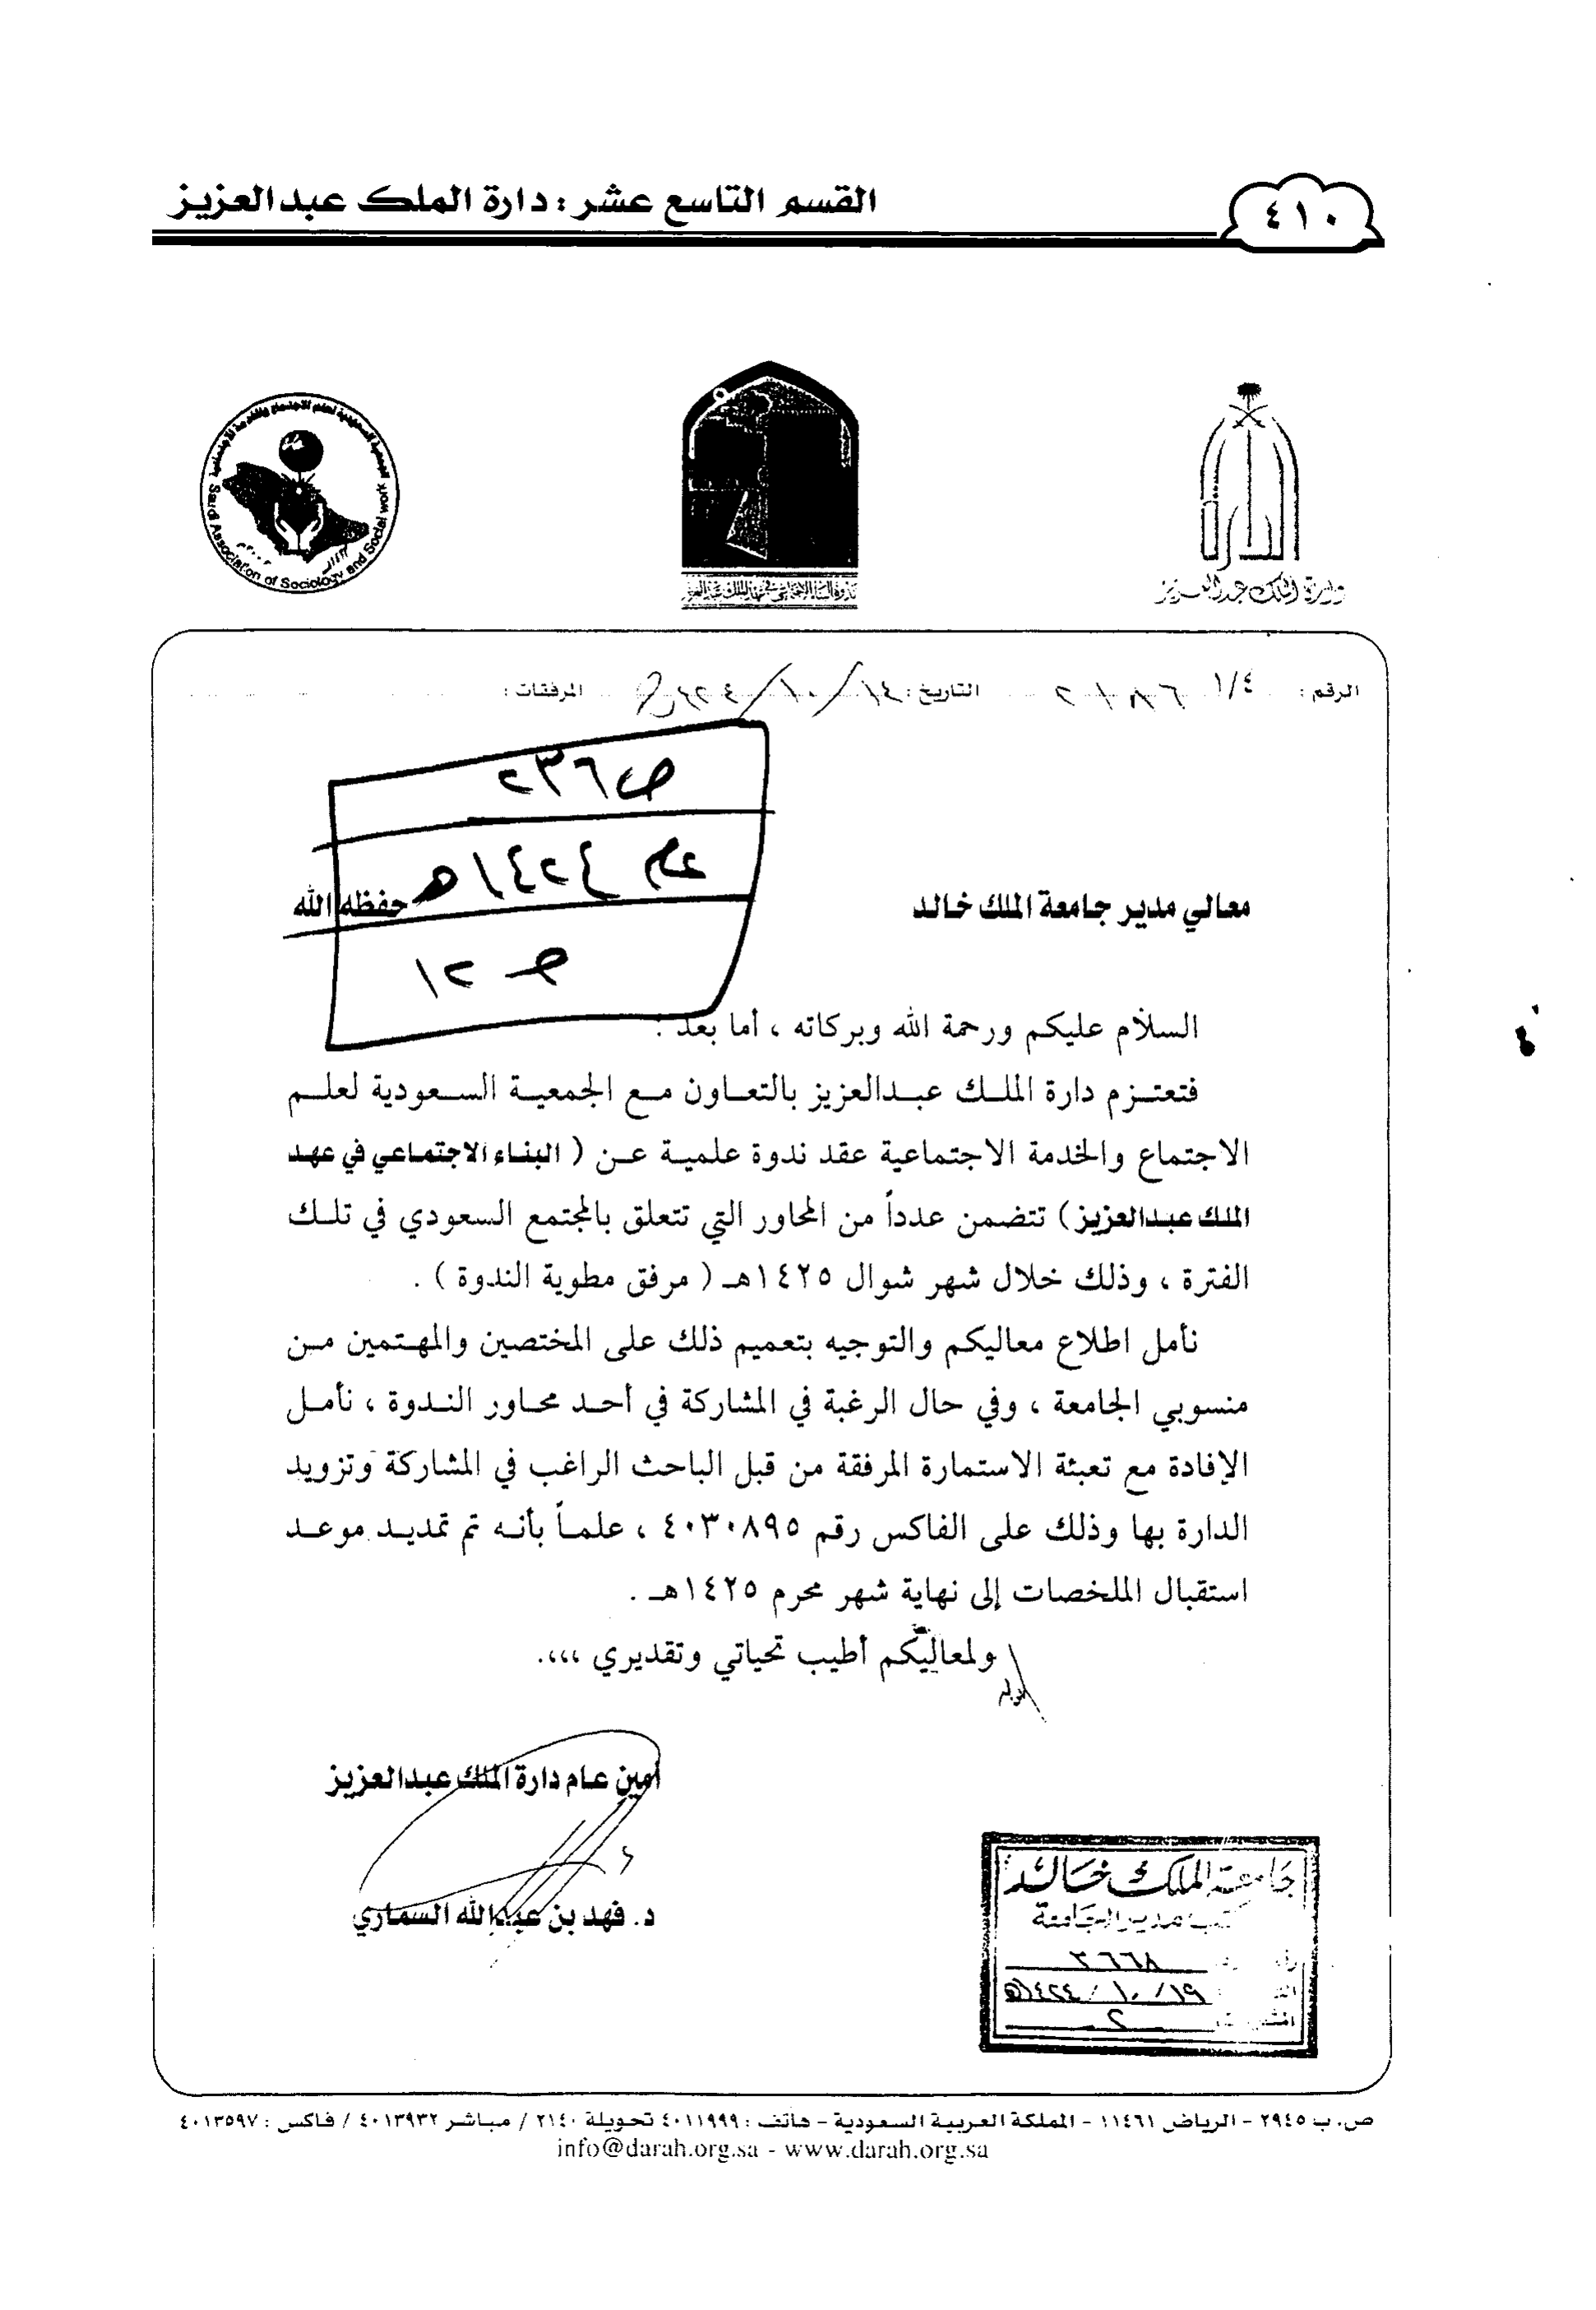 القسم التاسع عشر : دارة الملك عبدالعزيز
٤١٠
الجمعية السعودية لعلم الاجتماع والخدمة الاجتماعية
Saudi Association of Sociology and Social work
ندوة البناء الاجتماعي في عهد الملك عبدالعزيز
دارة الملك عبدالعزيز
الرقم : التاريخ : المرفقات :
معالي مدير جامعة الملك خالد حفظه الله
السلام عليكم ورحمة الله وبركاته ، أما بعد :
فتعتزم دارة الملك عبدالعزيز بالتعاون مع الجمعية السعودية لعلم
الاجتماع والخدمة الاجتماعية عقد ندوة علمية عن ( البناء الاجتماعي في عهد
الملك عبدالعزيز ) تتضمن عدداً من المحاور التي تتعلق بالمجتمع السعودي في تلك
الفترة ، وذلك خلال شهر شوال ١٤٢٥هـ ( مرفق مطوية الندوة ) .
نأمل اطلاع معاليكم والتوجيه بتعميم ذلك على المختصين والمهتمين من
منسوبي الجامعة ، وفي حال الرغبة في المشاركة في أحد محاور الندوة ، نأمل
الإفادة مع تعبئة الاستمارة المرفقة من قبل الباحث الراغب في المشاركة وتزويد
الدارة بها وذلك على الفاكس رقم ٤٠٣٠٨٩٥ ، علماً بأنه تم تمديد موعد
استقبال الملخصات إلى نهاية شهر محرم ١٤٢٥هـ .
ولمعاليكم أطيب تحياتي وتقديري ،،،،.
أمين عام دارة الملك عبدالعزيز
د. فهد بن عبدالله السماري
جامعة الملك خالد
مكتب مدير الجامعة
١٩ / ١٠ / ١٤٢٤هـ
ص. ب ٢٩٤٥ - الرياض ١١٤٦١ - المملكة العربية السعودية - هاتف : ٤٠١١٩٩٩ تحويلة ٢١٤٠ / مباشر ٤٠١٣٩٣٢ / فاكس : ٤٠١٣٥٩٧
info@darah.org.sa - www.darah.org.sa